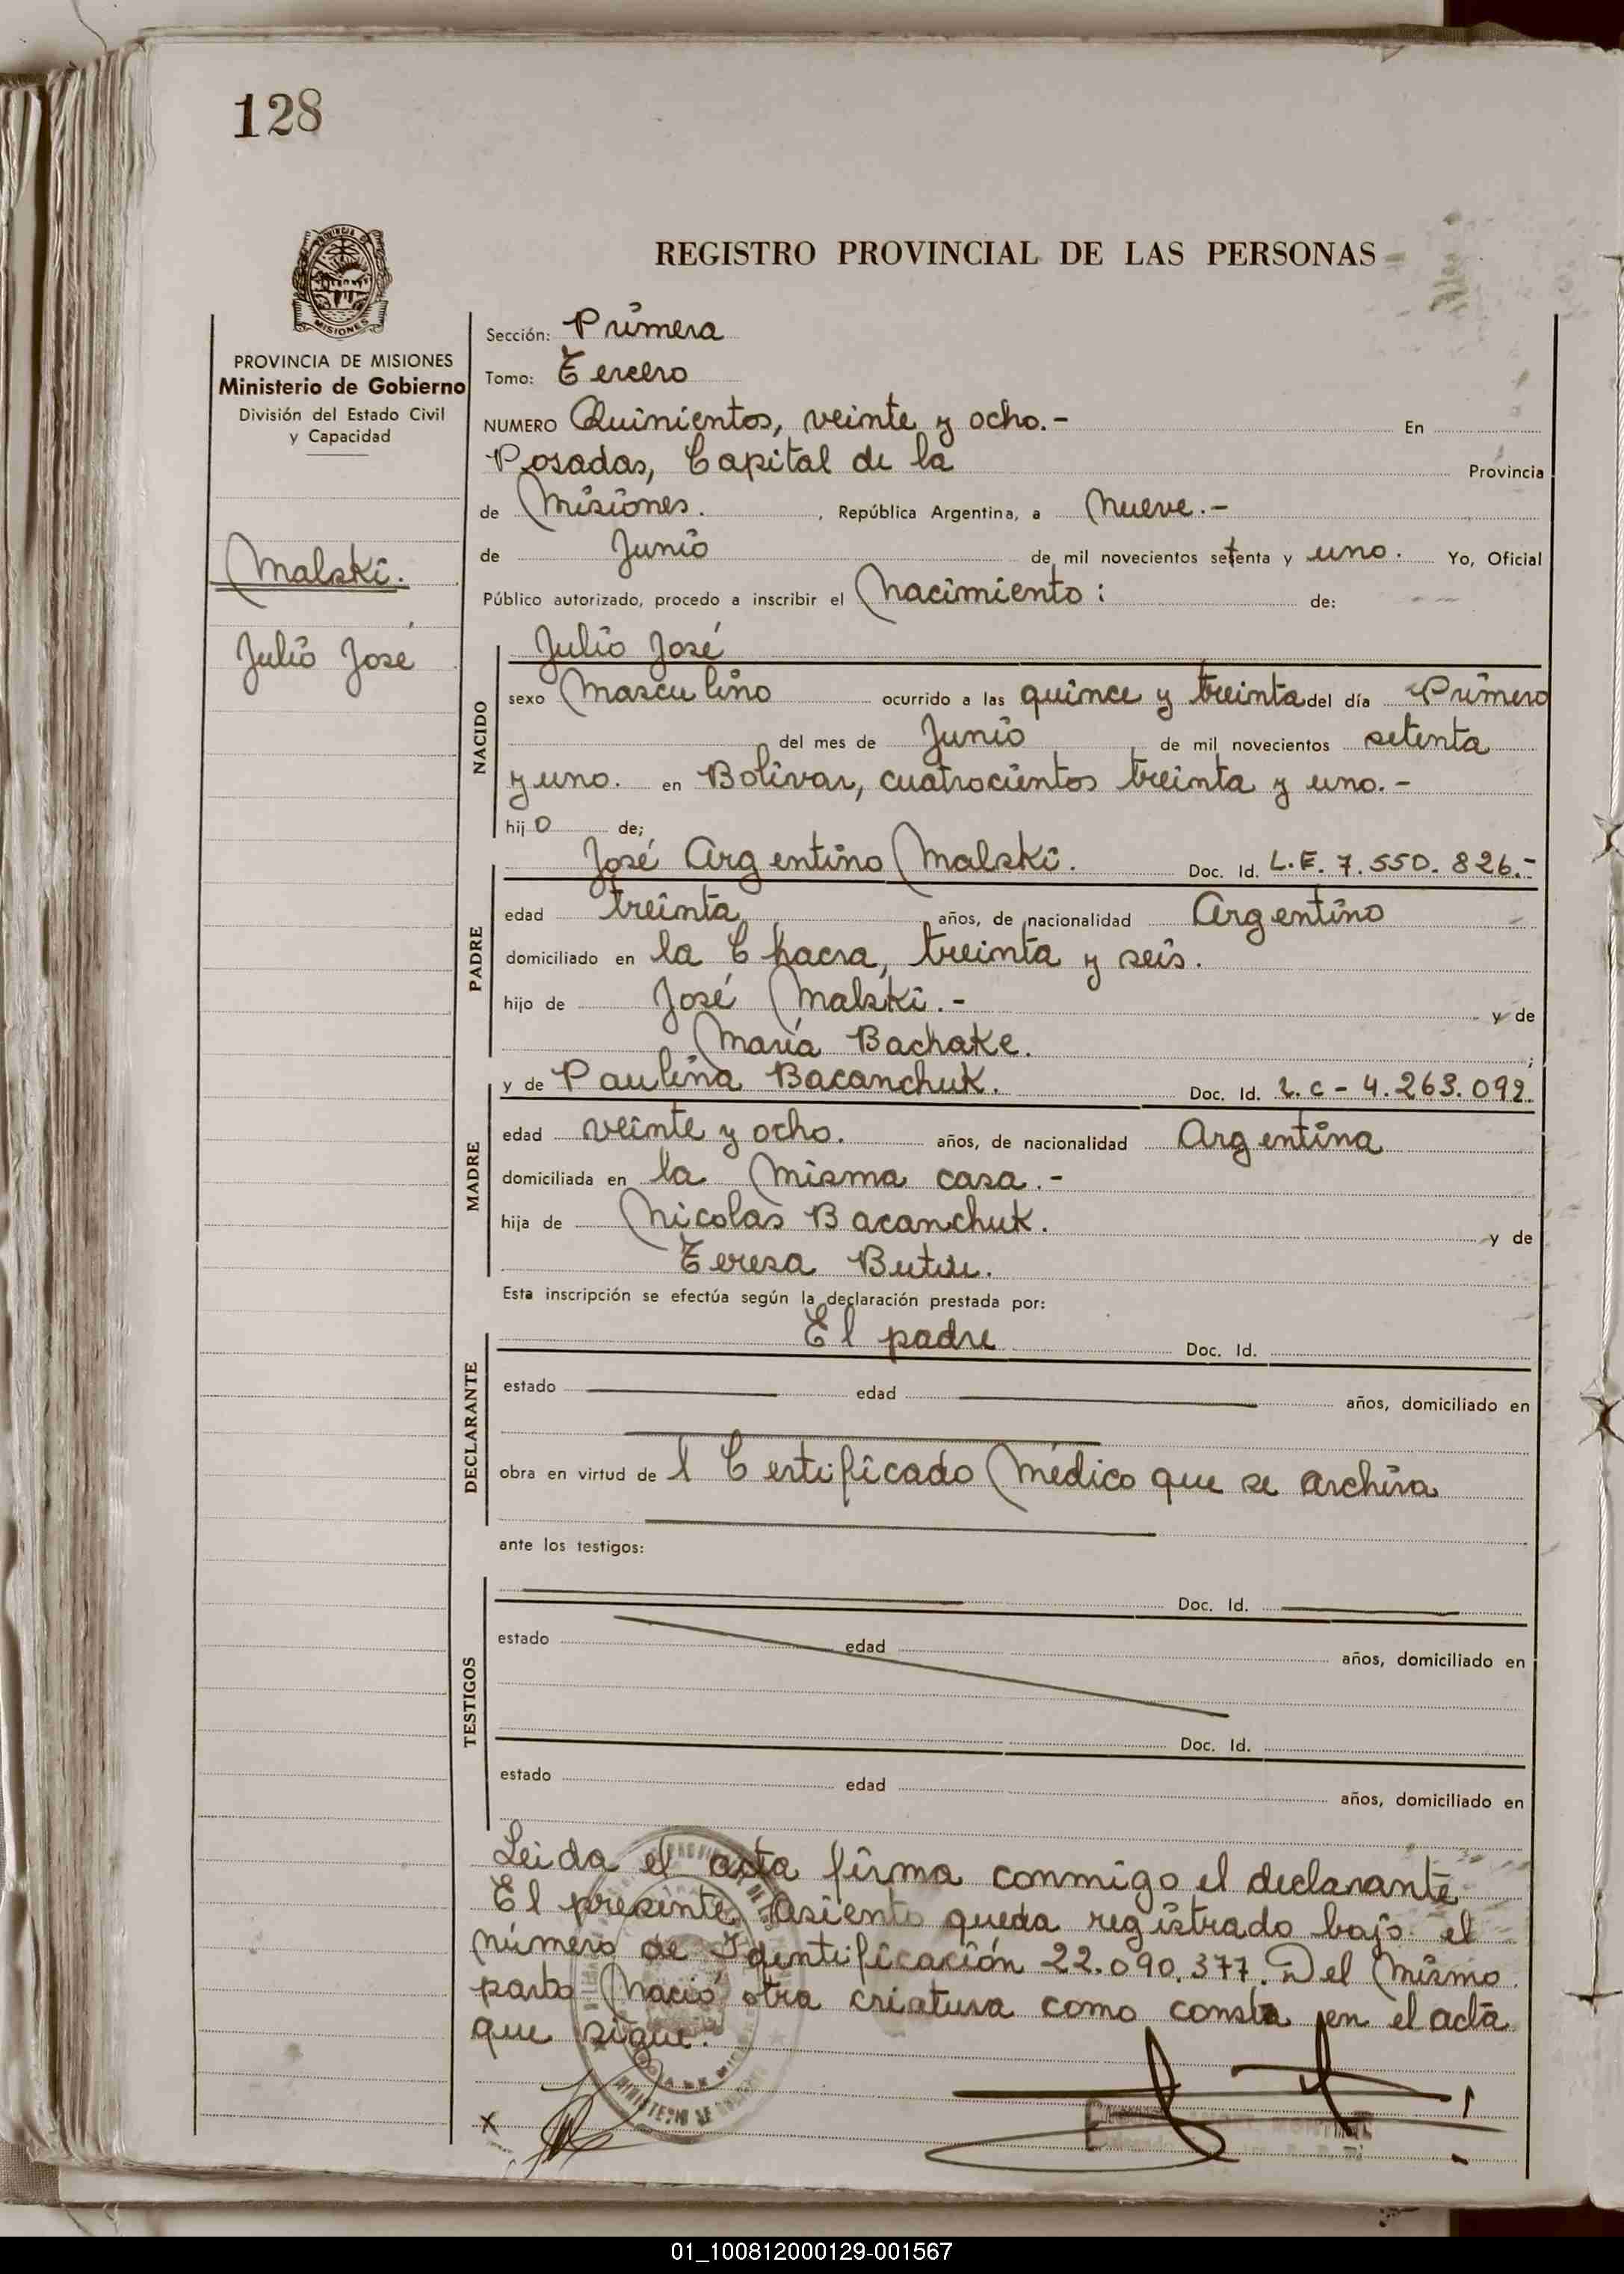 128
REGISTRO PROVINCIAL DE LAS PERSONAS
MISIONES
PROVINCIA DE MISIONES
Ministerio de Gobierno
División del Estado Civil
y Capacidad
Malski.
Julio José
Sección: Primera
Tomo: Tercero
NUMERO Quinientos, veinte y ocho.- En
Posadas, Capital de la Provincia
de Misiones. , República Argentina, a Nueve.-
de Junio de mil novecientos setenta y uno. Yo, Oficial
Público autorizado, procedo a inscribir el Nacimiento: de:
NACIDO
Julio José
sexo Masculino ocurrido a las quince y treinta del día Primero
del mes de Junio de mil novecientos setenta
y uno. en Bolivar, cuatrocientos treinta y uno.-
hijo de;
PADRE
José Argentino Malski. Doc. Id. L.E. 7.550.826.-
edad treinta años, de nacionalidad Argentino
domiciliado en la Chacra, treinta y seis.
hijo de José Malski.- y de
María Bachake. ;
MADRE
y de Paulina Bacanchuk. Doc. Id. L.C- 4.263.092.
edad veinte y ocho. años, de nacionalidad Argentina
domiciliada en la Misma casa.-
hija de Nicolas Bacanchuk. y de
Teresa
Esta inscripción se efectúa según la declaración prestada por:
DECLARANTE
El padre Doc. Id.
estado edad años, domiciliado en
obra en virtud de l Certificado Médico que se archiva
ante los testigos:
TESTIGOS
Doc. Id.
estado edad años, domiciliado en
Doc. Id.
estado edad años, domiciliado en
Leida el acta firma conmigo el declarante
El presente Asiento queda registrado bajo el
número de Identificación 22.090.377. Del Mismo
parto Nació otra criatura como consta en el acta
que sigue.
X
01_100812000129-001567